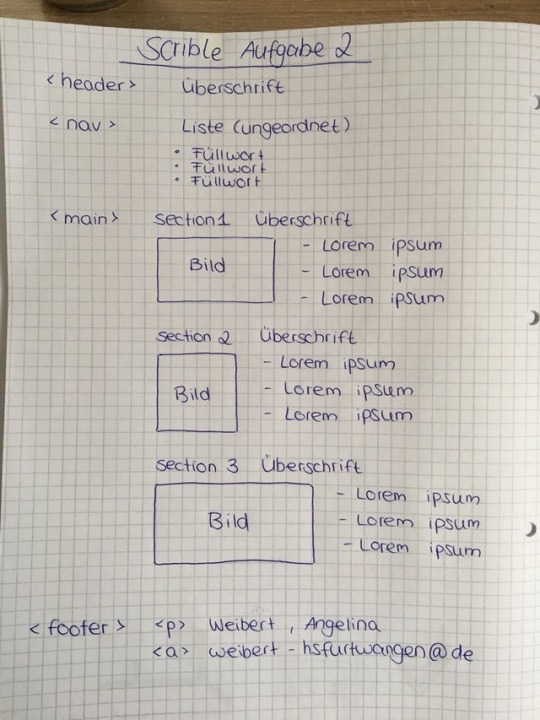 Scrible Aufgabe 2
<header> Überschrift
<nav> Liste (ungeordnet)
• Füllwort
• Füllwort
• Füllwort
<main> section 1 Überschrift
Bild
- Lorem ipsum
- Lorem ipsum
- Lorem ipsum
section 2 Überschrift
Bild
- Lorem ipsum
- Lorem ipsum
- Lorem ipsum
section 3 Überschrift
Bild
- Lorem ipsum
- Lorem ipsum
- Lorem ipsum
<footer> <p> Weibert, Angelina
<a> weibert - hsfurtwangen@de